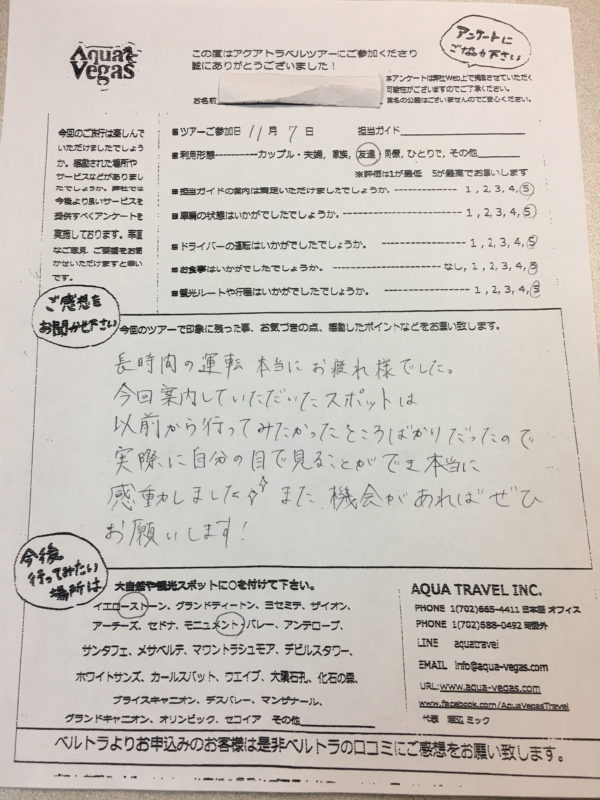 Aqua Vegas
この度はアクアトラベルツアーにご参加くださり
誠にありがとうございました！
アンケートに
ご協力下さい
本アンケートは弊社Web上で掲載させていただく
可能性がございますのでご了承ください。
実名の公表はございませんのでご安心ください。
お名前
今回のご旅行は楽しんで
いただけましたでしょう
か。感動された場所や
サービスなどがありまし
たでしょうか。弊社では
今後より良いサービスを
提供すべくアンケートを
実施しております。率直
なご意見、ご要望をお聞
かせいただけますと幸い
です。
■ツアーご参加日 11月 7日 担当ガイド
■利用形態-----------カップル・夫婦, 家族, 友達, 同僚, ひとりで, その他
※評価は1が最低 5が最高でお願いします
■担当ガイドの案内は満足いただけましたでしょうか。 ---------------- 1, 2, 3, 4, 5
■車輌の状態はいかがでしたでしょうか。 ---------------- 1, 2, 3, 4, 5
■ドライバーの運転はいかがでしたでしょうか。 ---------------- 1, 2, 3, 4, 5
■お食事はいかがでしたでしょうか。 ---------------- なし, 1, 2, 3, 4, 5
■観光ルートや行程はいかがでしたでしょうか。 ---------------- 1, 2, 3, 4, 5
ご感想を
お聞かせ下さい
今回のツアーで印象に残った事、お気づきの点、感動したポイントなどをお願い致します。
長時間の運転 本当に お疲れ様でした。
今回案内していただいたスポットは
以前から行ってみたかったところばかりだったので
実際に自分の目で見ることができ本当に
感動しました また 機会があればぜひ
お願いします！
今後
行ってみたい
場所は
大自然や観光スポットに○を付けて下さい。
イエローストーン、グランドティートン、ヨセミテ、ザイオン、
アーチーズ、セドナ、モニュメントバレー、アンテロープ、
サンタフェ、メサベルデ、マウントラシュモア、デビルスタワー、
ホワイトサンズ、カールスバット、ウエイブ、大隕石孔、化石の森、
ブライスキャニオン、デスバレー、マンザナール、
グランドキャニオン、オリンピック、セコイア その他
AQUA TRAVEL INC.
PHONE 1(702)665-4411 日本語 オフィス
PHONE 1(702)588-0492 時間外
LINE aquatravel
EMAIL info@aqua-vegas.com
URL:www.aqua-vegas.com
www.facebook.com/AquaVegasTravel
代表 渡辺 ミック
ベルトラよりお申込みのお客様は是非ベルトラの口コミにご感想をお願い致します。